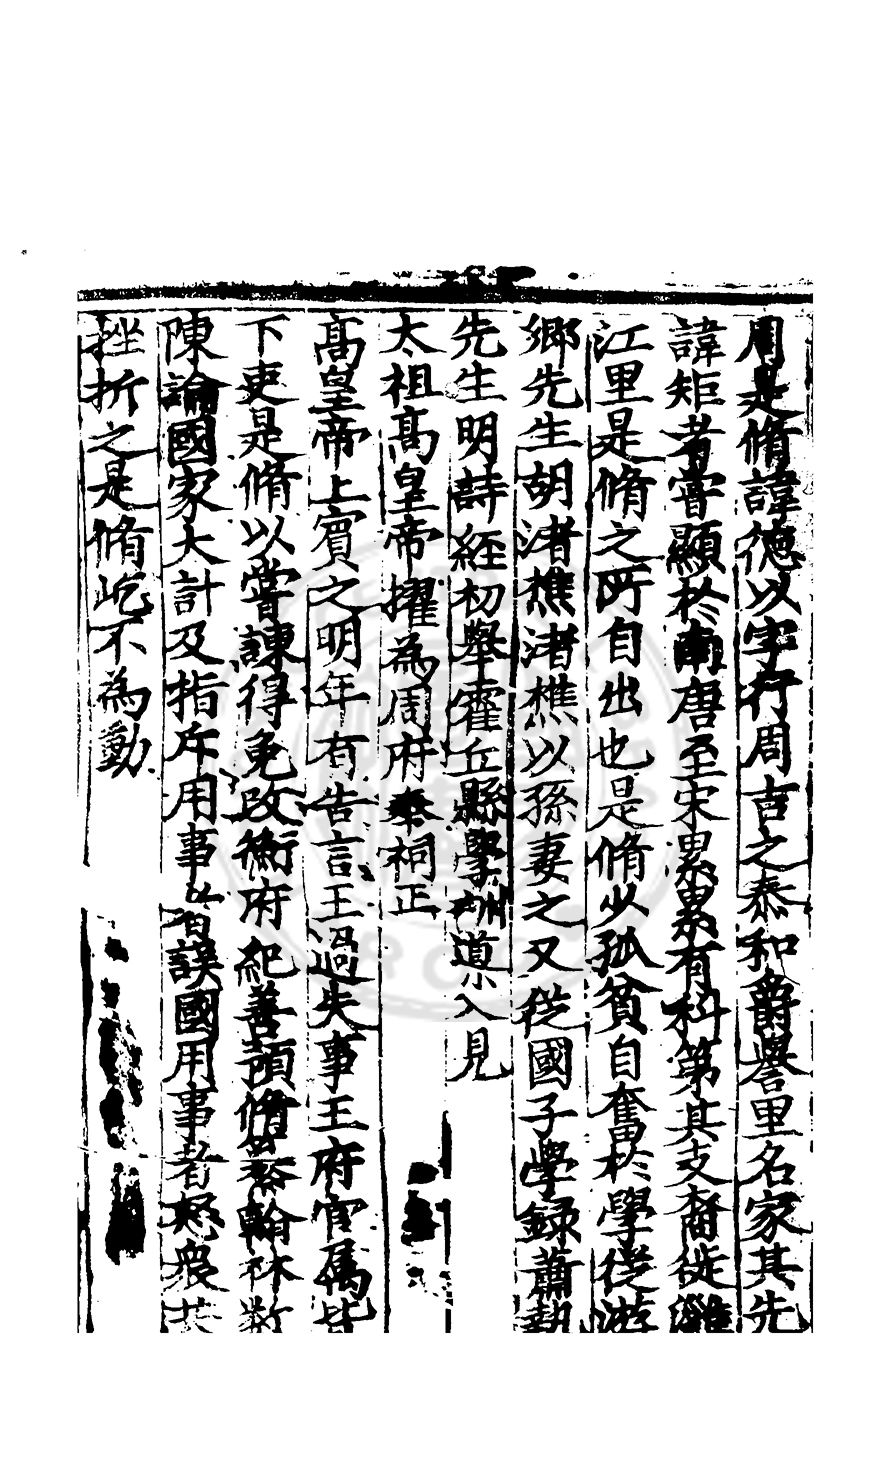 周是脩諱德以字行周吉之泰和爵譽里名家其先
諱矩者嘗顯於南唐至宋累累有科第其支裔徙灘
江里是脩之所自出也是脩少孤貧自奮於學從遊
鄉先生胡渚樵渚樵以孫妻之又從國子學錄蕭執
先生明詩經初舉霍丘縣學訓道入見
太祖高皇帝擢為周府奉祠正
高皇帝上賓之明年有告言王過失事王府官屬皆
下吏是脩以嘗諫得免改衡府紀善預脩纂翰林數
陳論國家大計及指斥用事者誤國用事者怒衆共
挫折之是脩屹不為動